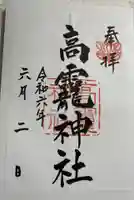 奉拝
高龗神社
令和六年
六月二日